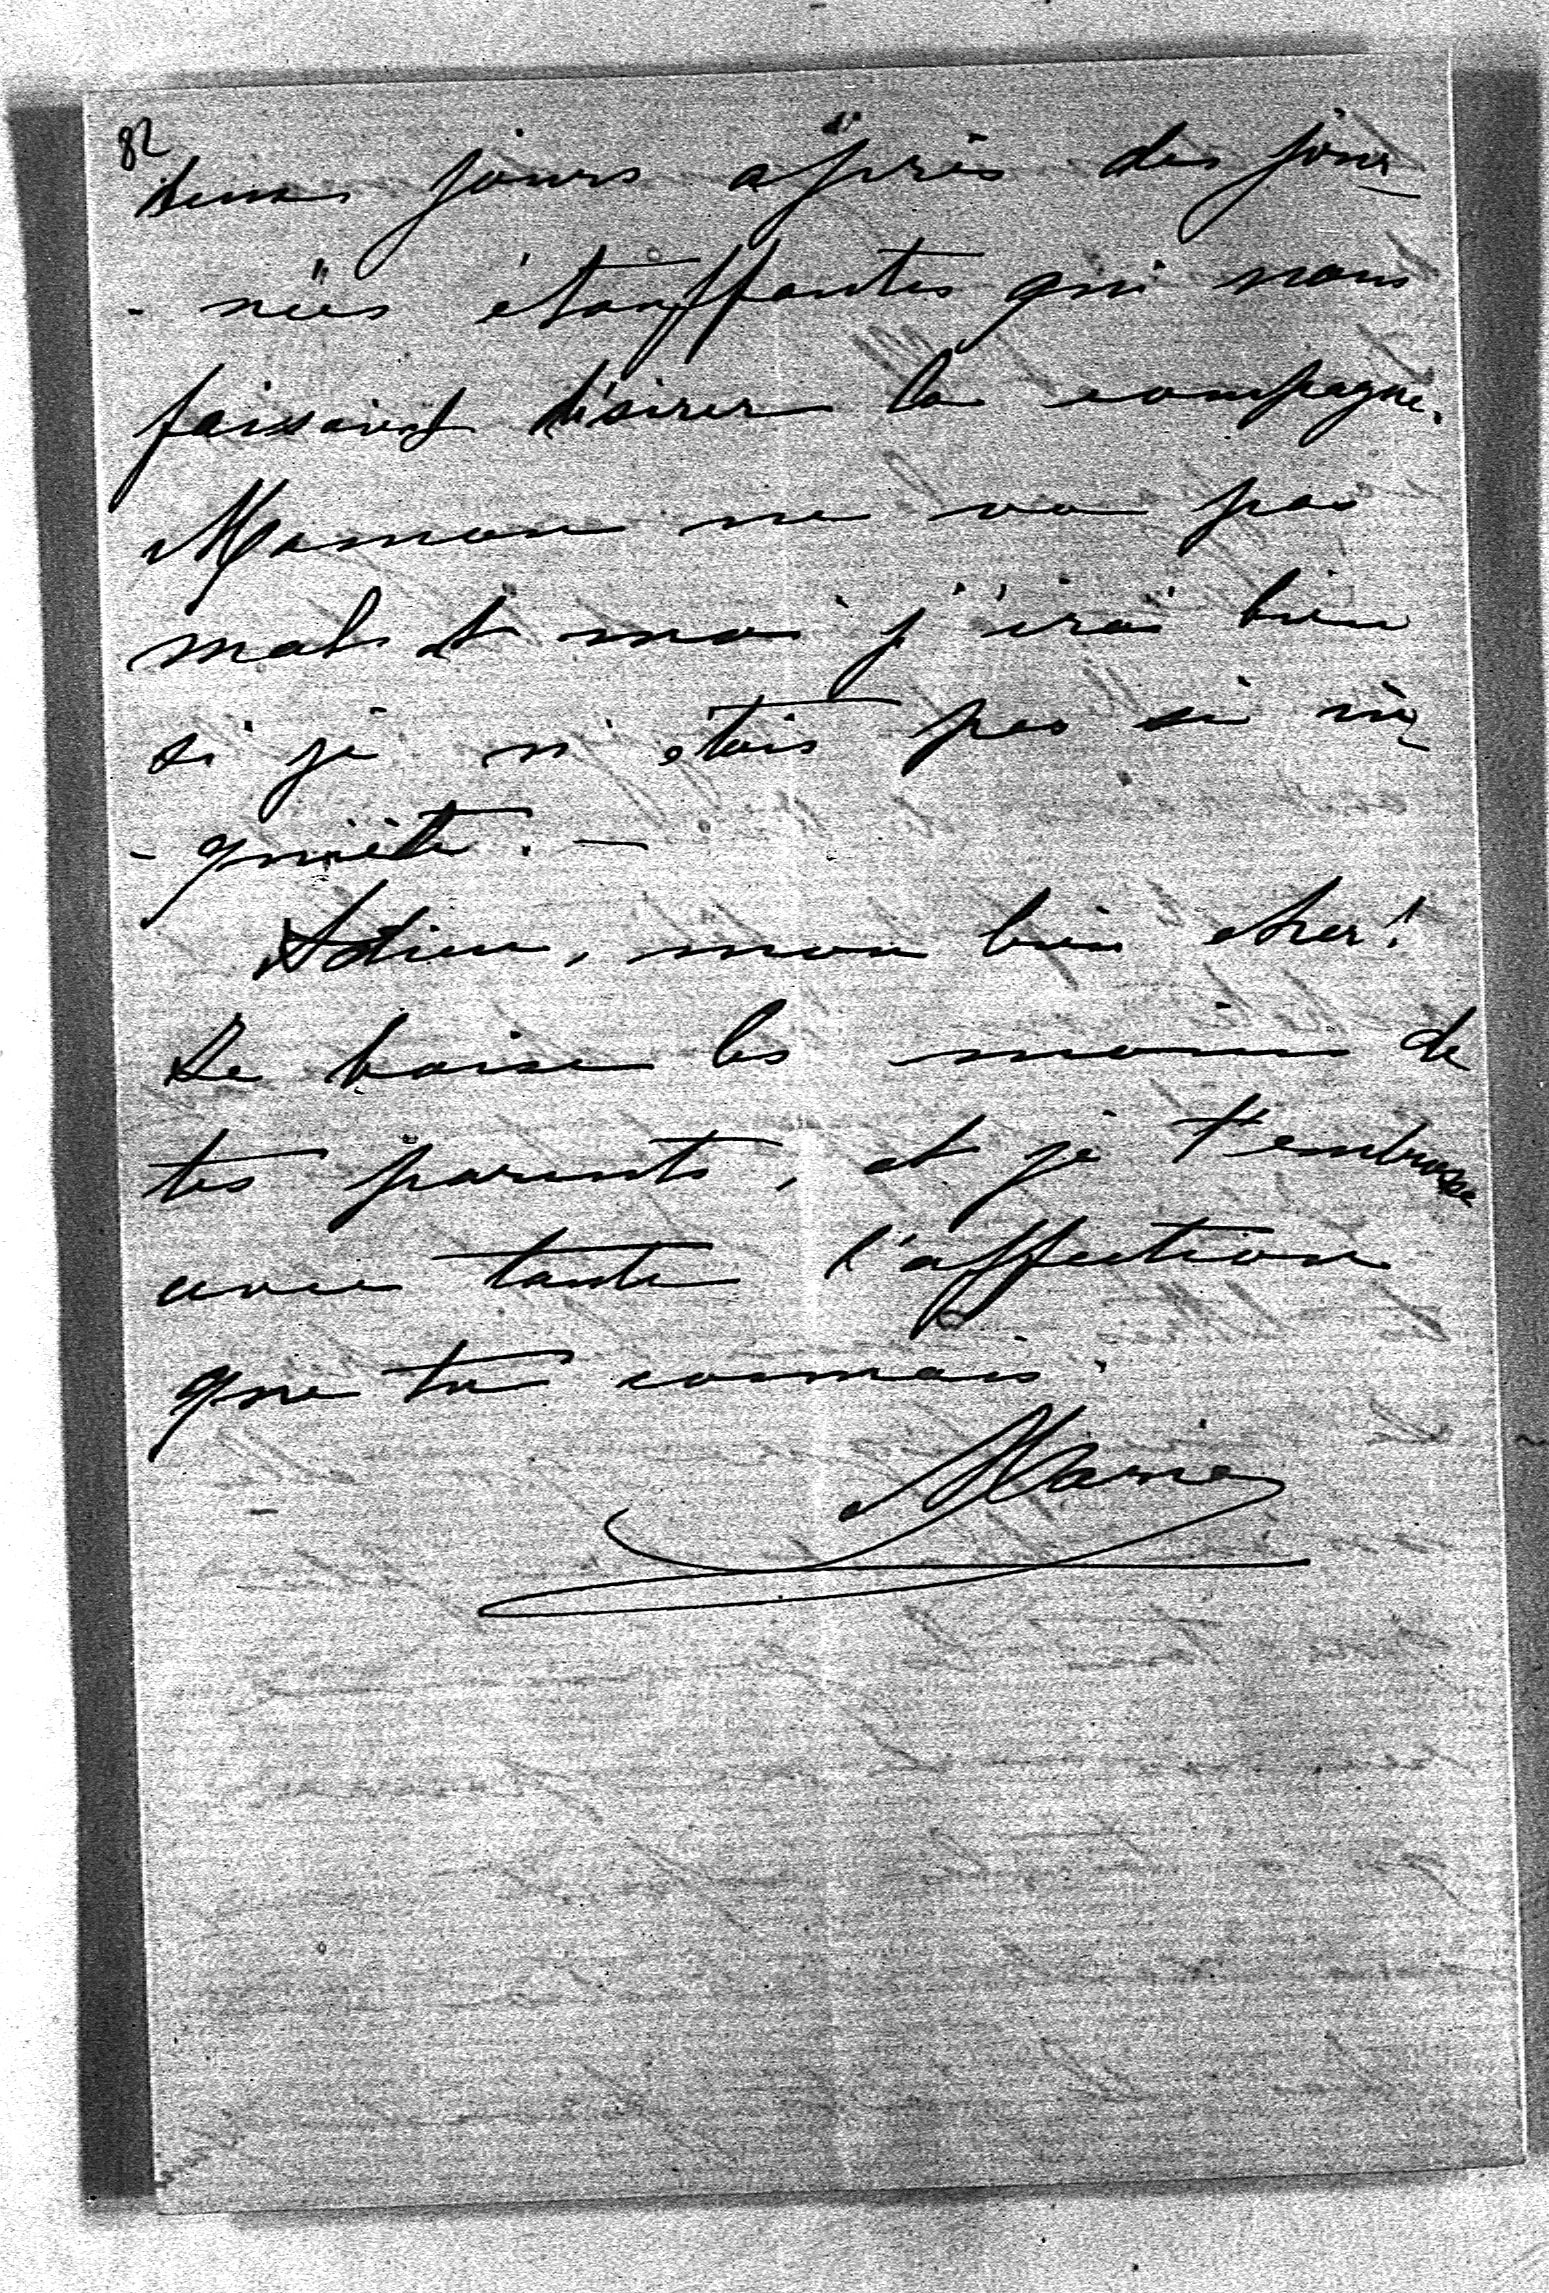 82
deux jours après des jour-
- nées étouffantes qui nous
faisaient désirer la campagne.
Maman ne va pas
mal et moi j'irai bien
si je n'étais pas si in-
- quiète. —
Adieu, mon bien cher!
Je baise les mains de
tes parents, et je t'embrasse
avec toute l'affection
que tu connais.
Marie